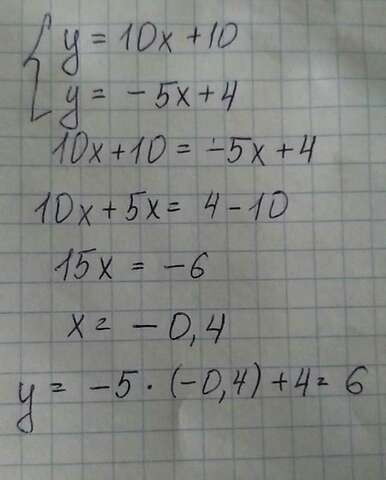 y = 10x + 10
y = -5x + 4
10x + 10 = -5x + 4
10x + 5x = 4 - 10
15x = -6
x = -0,4
y = -5 · (-0,4) + 4 = 6